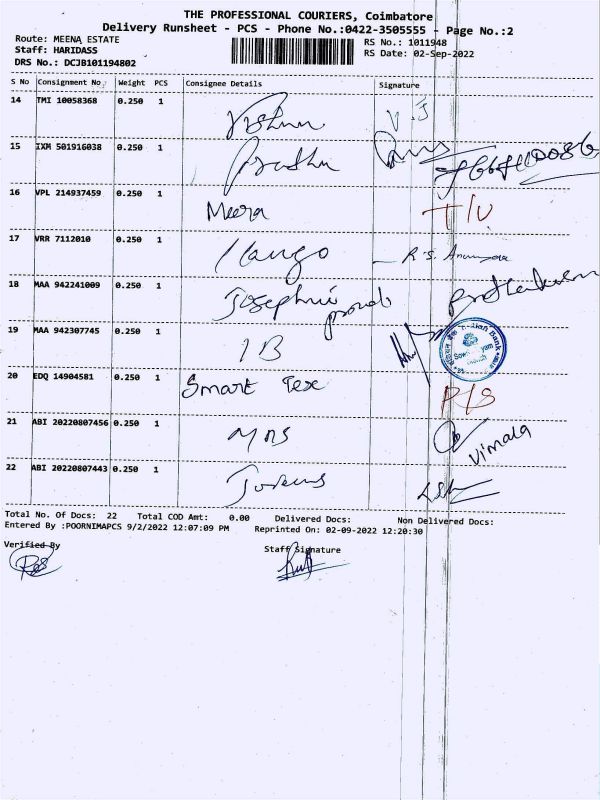 THE PROFESSIONAL COURIERS, Coimbatore
Delivery Runsheet - PCS - Phone No.:0422-3505555 - Page No.:2
Route: MEENA ESTATE
RS No.: 1011948
Staff: HARIDASS
RS Date: 02-Sep-2022
DRS No.: DCJB101194802
S No Consignment No. Weight PCS Consignee Details Signature
14 TMI 10058368 0.250 1 Vishnu V.J
15 IXM 501916038 0.250 1 Pradhu
16 VPL 214937459 0.250 1 Meera T/V
17 VRR 7112010 0.250 1 R.S.
18 MAA 942241009 0.250 1 Josephine
19 MAA 942307745 0.250 1 IB
20 EDQ 14904581 0.250 1 Smart Tex R/S
21 ABI 20220807456 0.250 1 MRS Vimala
22 ABI 20220807443 0.250 1
Total No. Of Docs: 22 Total COD Amt: 0.00 Delivered Docs: Non Delivered Docs:
Entered By :POORNIMAPCS 9/2/2022 12:07:09 PM Reprinted On: 02-09-2022 12:20:30
Verified By Staff Signature